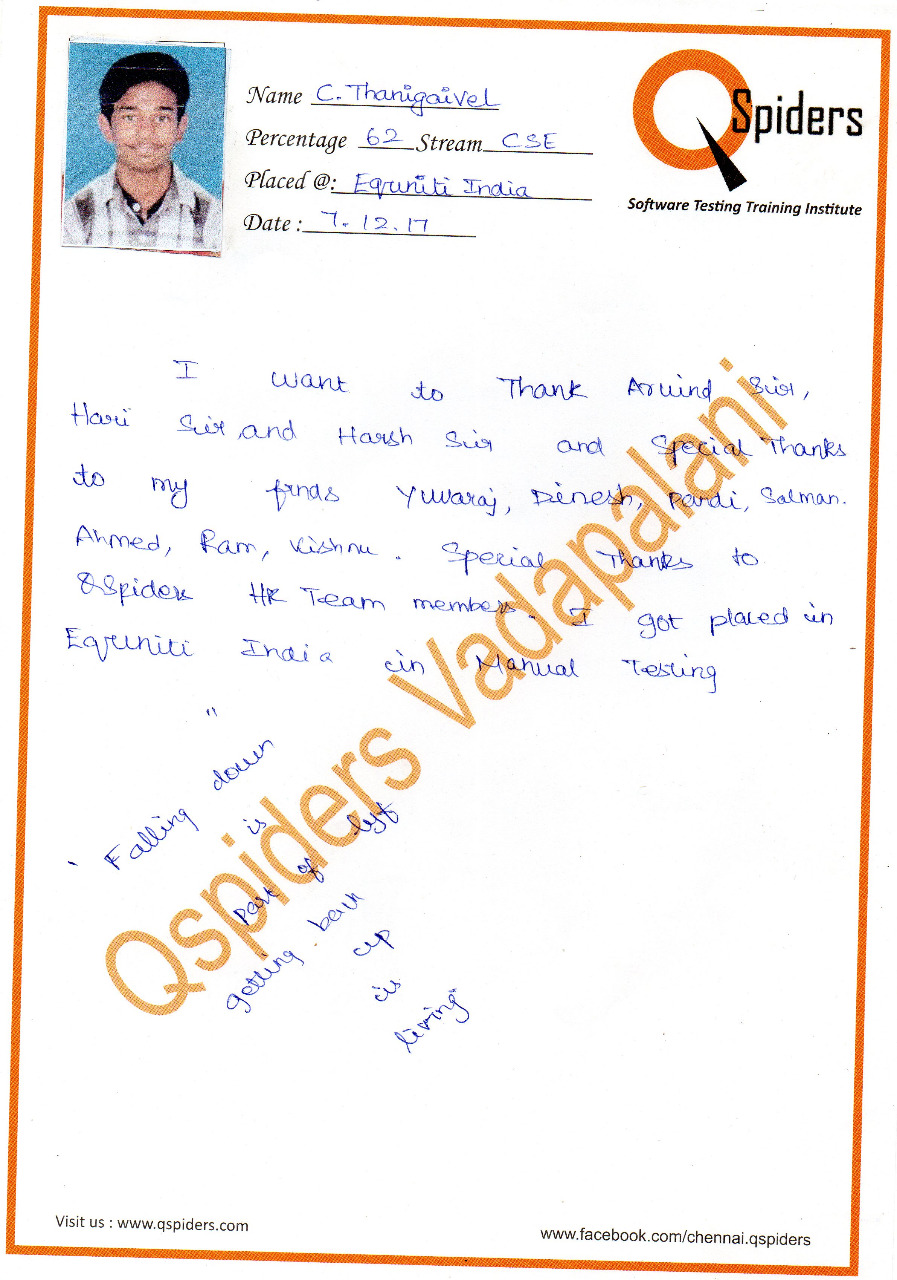 Name C. Thanigaivel
Percentage 62 Stream CSE
Placed @: Equniti India
Date : 7.12.17
QSpiders
Software Testing Training Institute
I want to Thank Aruind Sir,
Hari Sir, and Harsh Sir and Special Thanks
to my frnds Yuvaraj, Dinesh, Pandi, Salman.
Ahmed, Ram, Vishnu. Special Thanks to
QSpiders HR Team members. I got placed in
Equniti India in Manual Testing
"Falling down
is
part of lyf
getting back
up
is
living"
Qspiders Vadapalani
Visit us : www.qspiders.com
www.facebook.com/chennai.qspiders